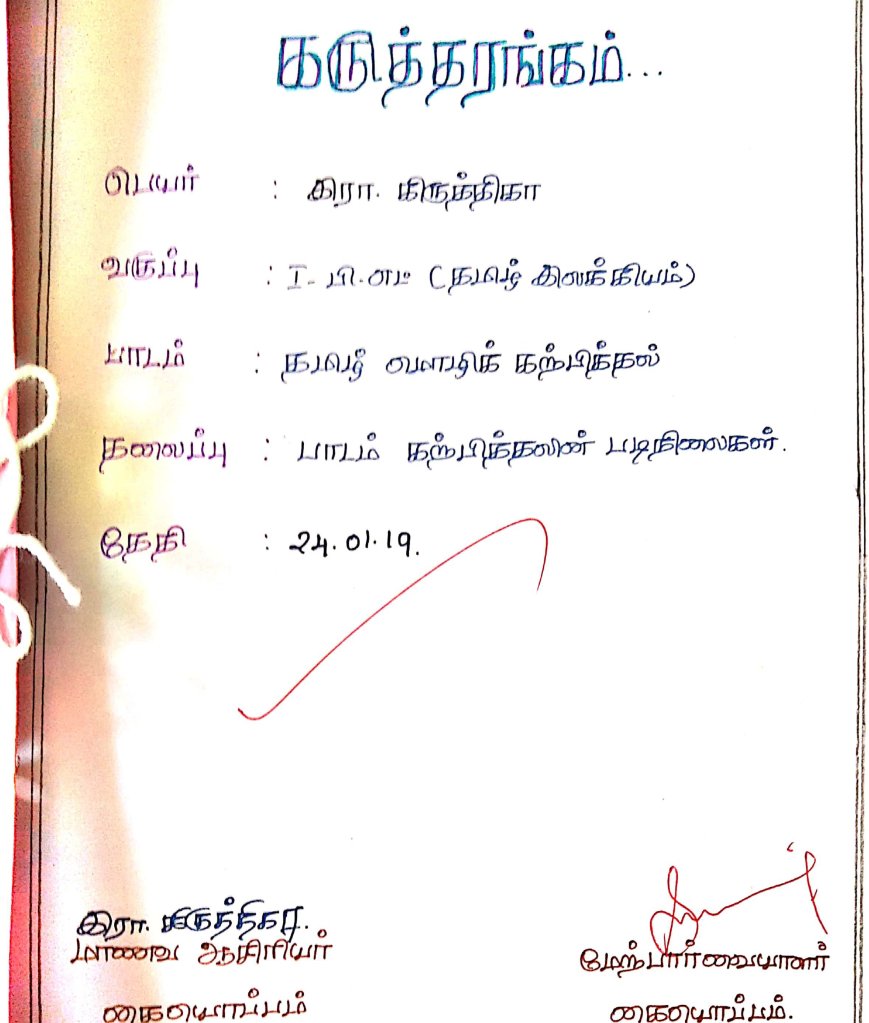 கருத்தரங்கம்...
பெயர் : இரா. கிருத்திகா
வகுப்பு : I - பி.எட் (தமிழ் இலக்கியம்)
பாடம் : தமிழ் மொழிக் கற்பித்தல்
தலைப்பு : பாடம் கற்பித்தலின் படிநிலைகள்.
தேதி : 24.01.19.
இரா. கிருத்திகா.
மாணவ ஆசிரியர்
மேற்பார்வையாளர்
கையொப்பம்
கையொப்பம்.